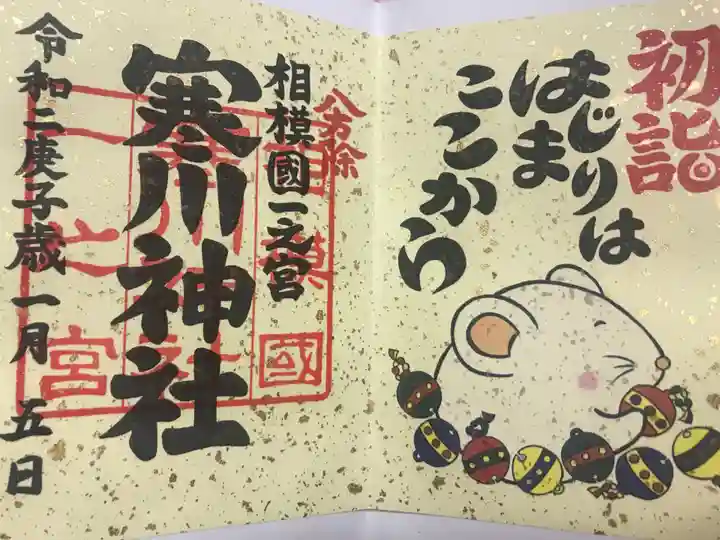 初詣
はじまりは
ここから
八方除
相模國一之宮
寒川神社
令和二庚子歳一月五日
相模國
寒川神社
一之宮